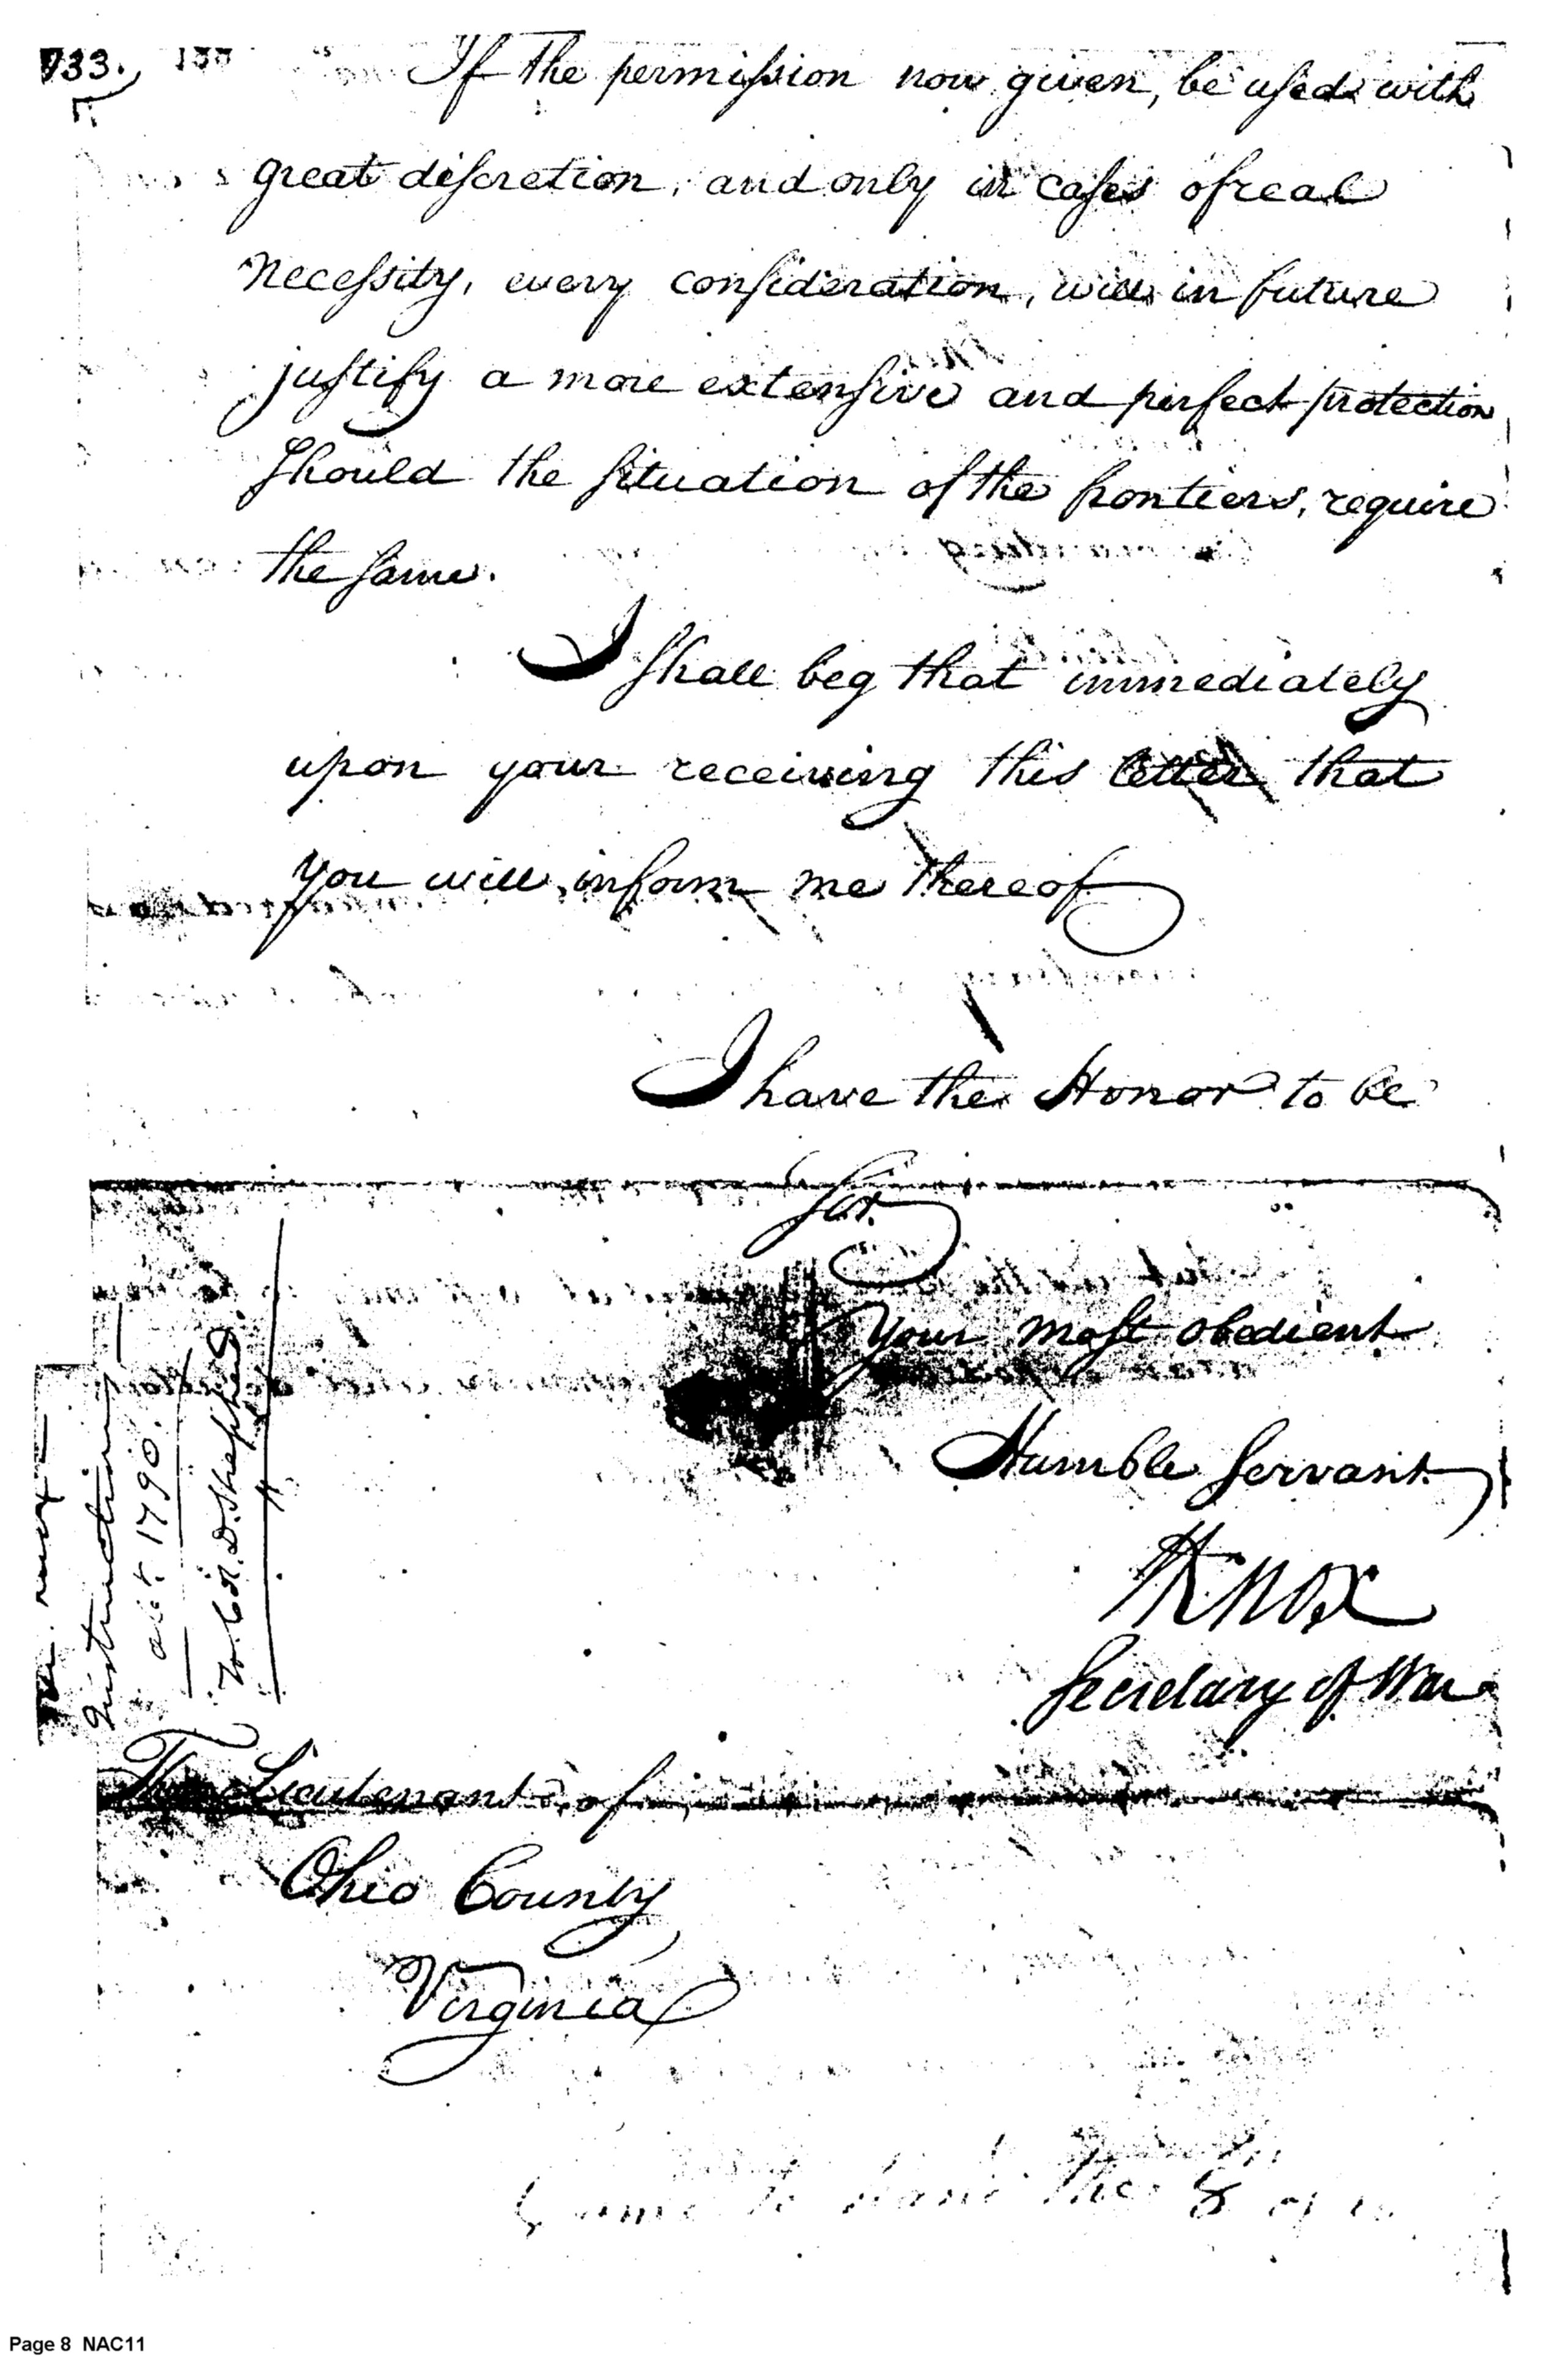 733.
If the permission now given, be used with
great discretion, and only in cases of real
necessity, every consideration, will in future
justify a more extensive and perfect protection
should the situation of the frontiers, require
the same.
I shall beg that immediately
upon your receiving this letter that
you will inform me thereof
I have the Honor to be
Sir.
Your most obedient
Humble Servant
HKnox
Secretary of War
Instructions
1790.
D. Shepherd
The Lieutenant of
Ohio County
Virginia
to hand the 8
Page 8 NAC11